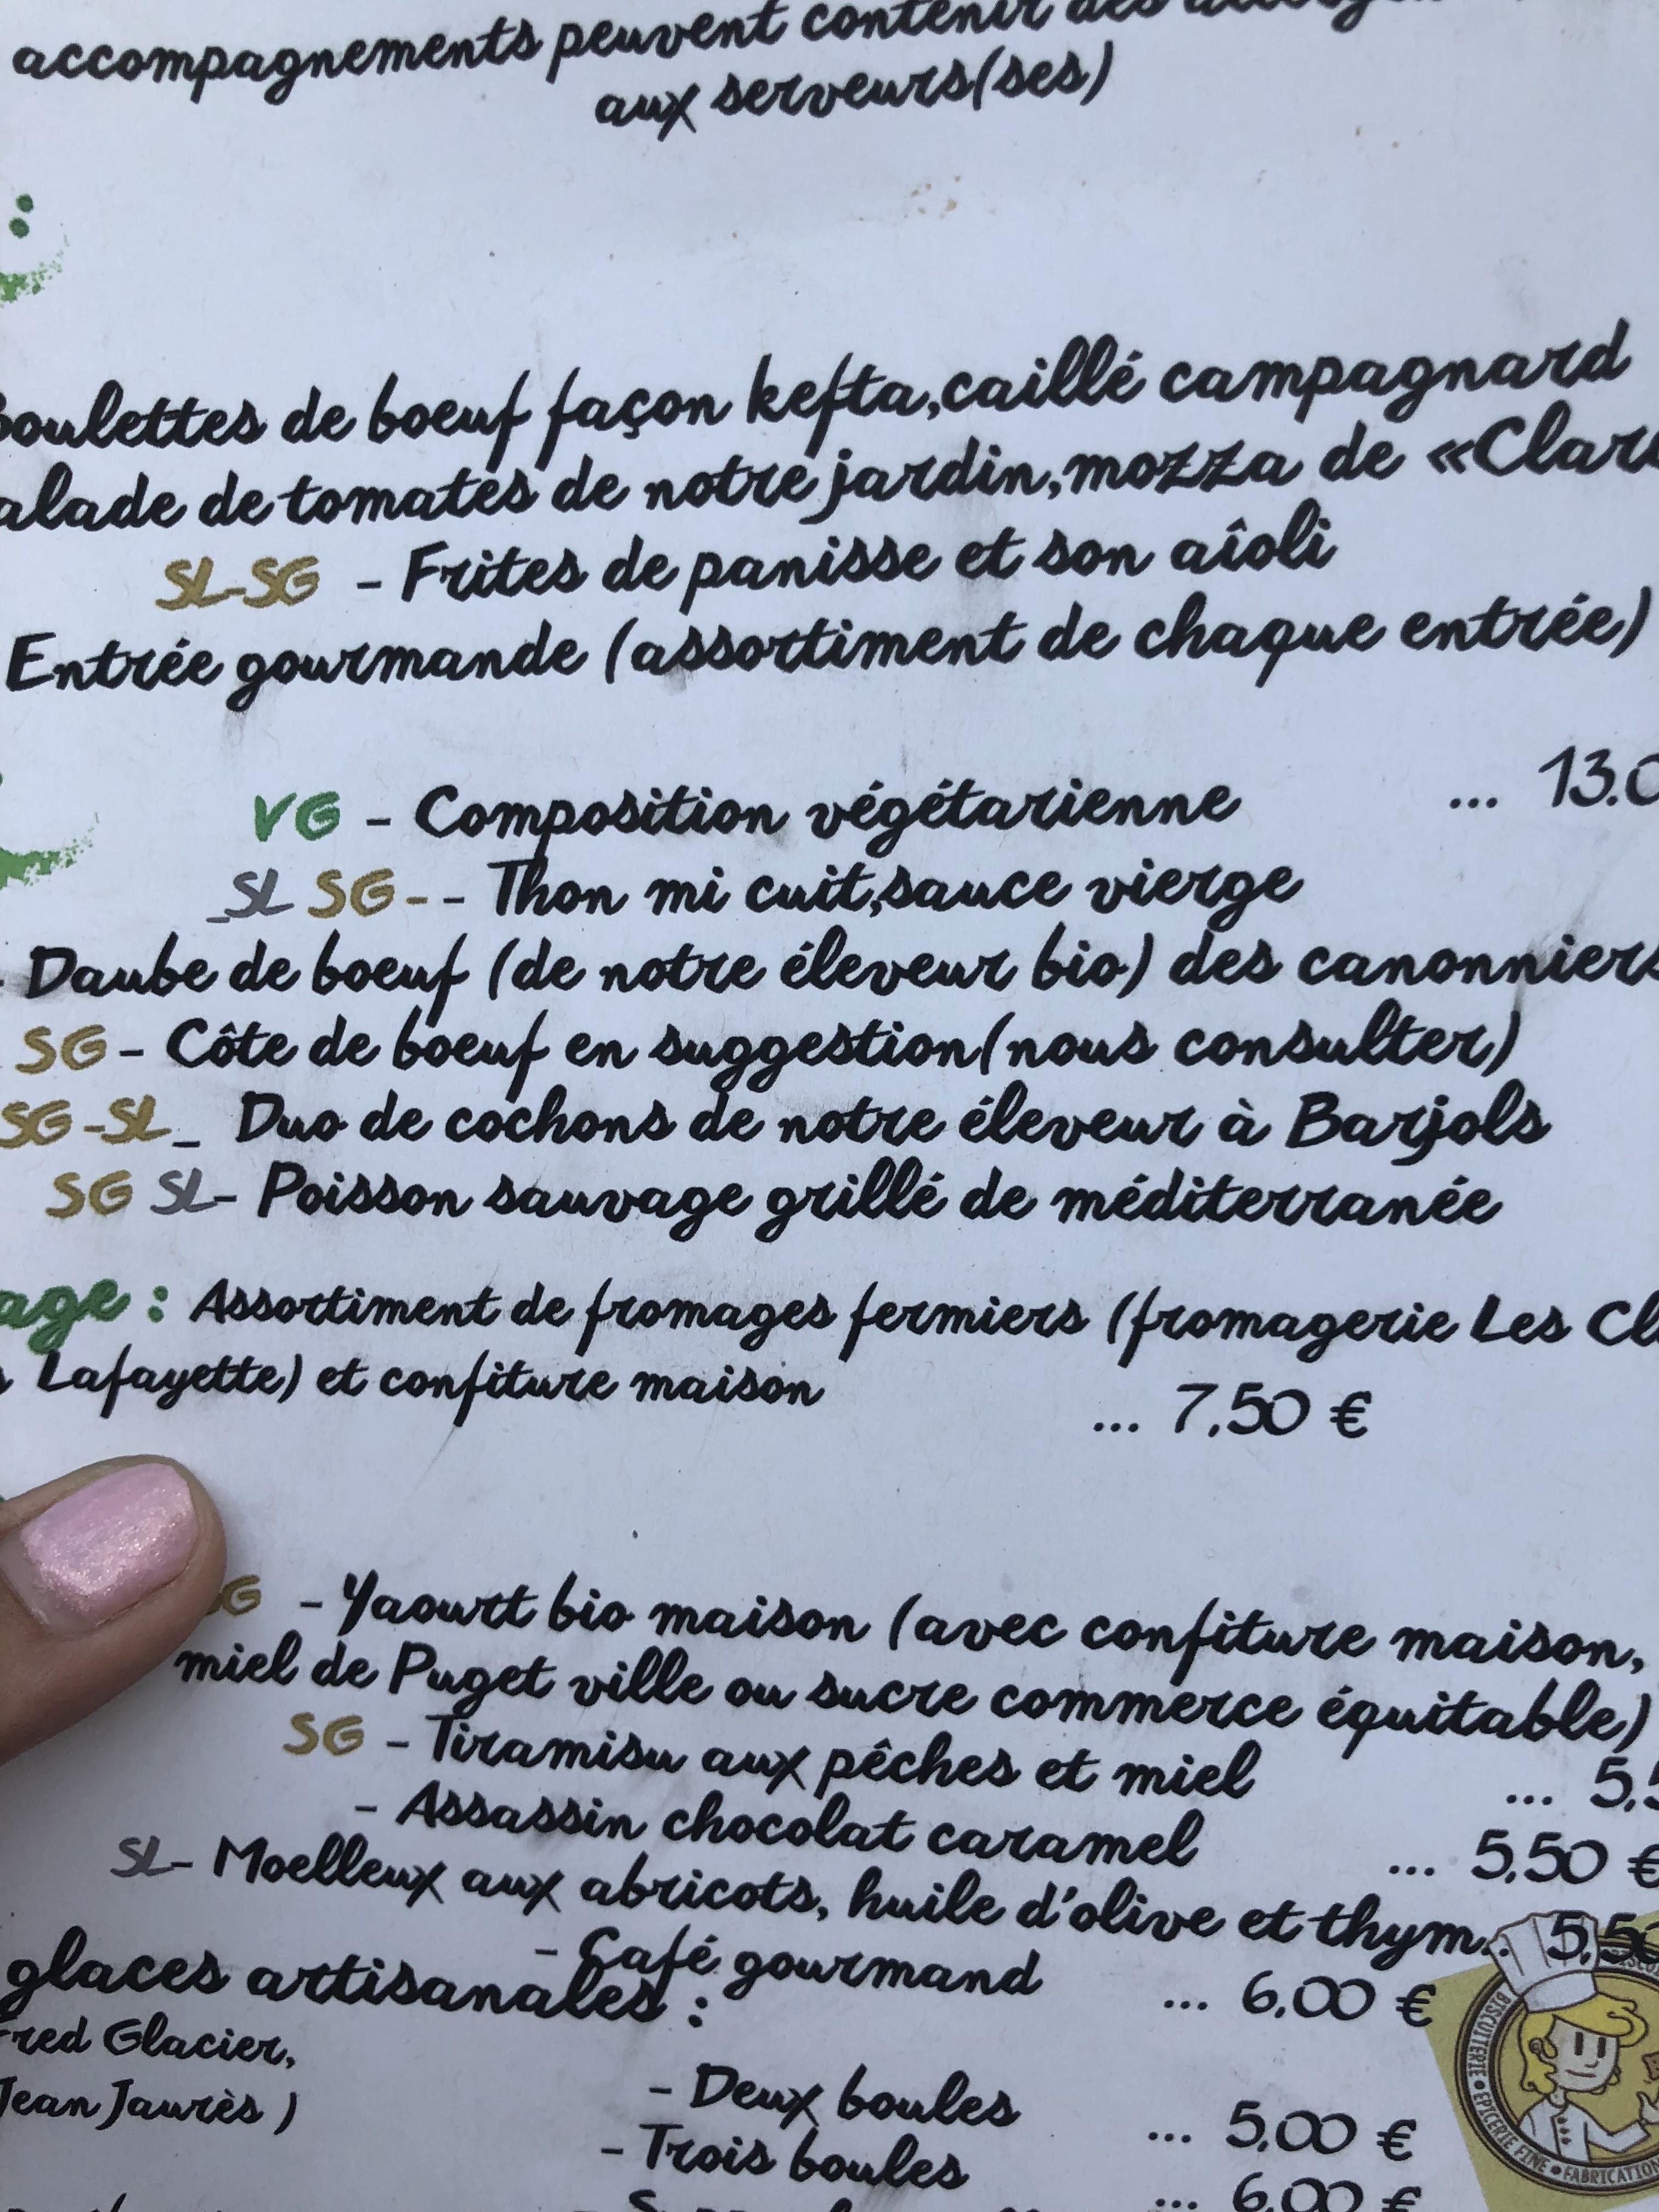 accompagnements peuvent contenir des
aux serveurs(ses)
:
boulettes de boeuf façon kefta,caillé campagnard
alade de tomates de notre jardin,mozza de «Clar
SL-SG - Frites de panisse et son aîoli
Entrée gourmande (assortiment de chaque entrée)
VG - Composition végétarienne ... 13.0
_SL SG-- Thon mi cuit,sauce vierge
- Daube de boeuf (de notre éleveur bio) des canonniers
SG - Côte de boeuf en suggestion(nous consulter)
SG -SL_ Duo de cochons de notre éleveur à Barjols
SG SL- Poisson sauvage grillé de méditerranée
age : Assortiment de fromages fermiers (fromagerie Les Cl
s Lafayette) et confiture maison
... 7,50 €
G - Yaourt bio maison (avec confiture maison,
miel de Puget ville ou sucre commerce équitable)
SG - Tiramisu aux pêches et miel ... 5,5
- Assassin chocolat caramel ... 5,50 €
SL- Moelleux aux abricots, huile d'olive et thym.. 5,50
- Café gourmand ... 6,00 €
glaces artisanales :
Fred Glacier,
Jean Jaurès )
- Deux boules ... 5,00 €
- Trois boules ... 6,00 €
BISCUITERIE • EPICERIE FINE • FABRICATION